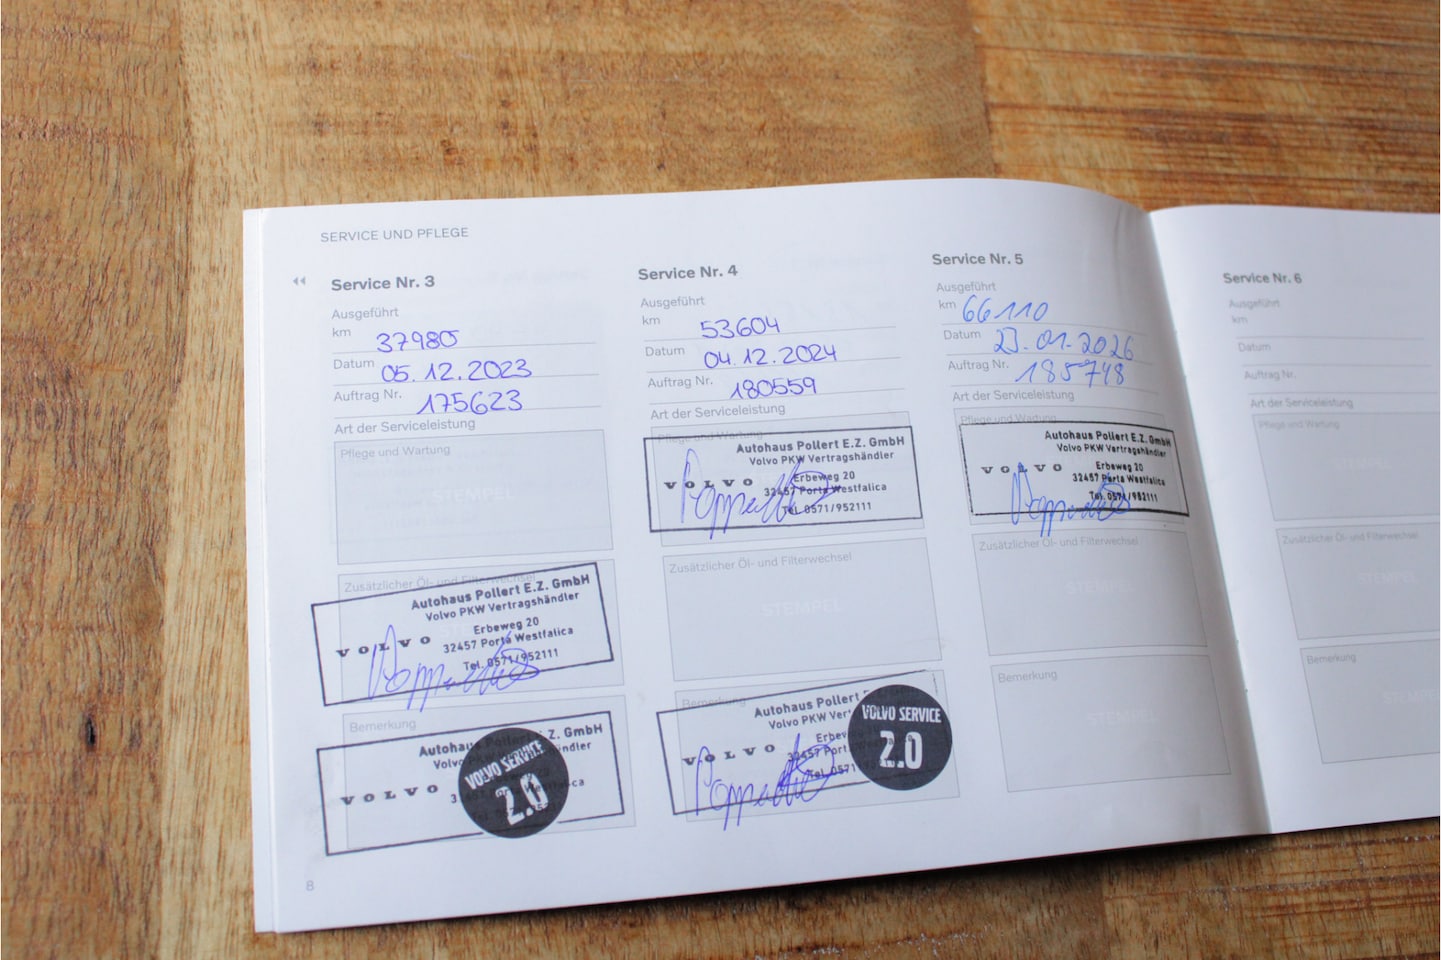 SERVICE UND PFLEGE
Service Nr. 3
Ausgeführt
km 37980
Datum 05.12.2023
Auftrag Nr. 175623
Art der Serviceleistung
Pflege und Wartung
STEMPEL
Zusätzlicher Öl- und Filterwechsel
Autohaus Pollert E.Z. GmbH
Volvo PKW Vertragshändler
VOLVO
Erbeweg 20
32457 Porta Westfalica
Tel. 0571/952111
Bemerkung
Autohaus Pollert E.Z. GmbH
VOLVO
VOLVO SERVICE
2.0
8
Service Nr. 4
Ausgeführt
km 53604
Datum 04.12.2024
Auftrag Nr. 180559
Art der Serviceleistung
Pflege und Wartung
Autohaus Pollert E.Z. GmbH
Volvo PKW Vertragshändler
VOLVO
Erbeweg 20
32457 Porta Westfalica
Tel. 0571/952111
Zusätzlicher Öl- und Filterwechsel
STEMPEL
Bemerkung
Autohaus Pollert
Volvo PKW
VOLVO
VOLVO SERVICE
2.0
Service Nr. 5
Ausgeführt
km 66110
Datum 23.01.2026
Auftrag Nr. 185748
Art der Serviceleistung
Pflege und Wartung
Autohaus Pollert E.Z. GmbH
Volvo PKW Vertragshändler
VOLVO
Erbeweg 20
32457 Porta Westfalica
Tel. 0571/952111
Zusätzlicher Öl- und Filterwechsel
STEMPEL
Bemerkung
STEMPEL
Service Nr. 6
Ausgeführt
km
Datum
Auftrag Nr.
Art der Serviceleistung
Pflege und Wartung
STEMPEL
Zusätzlicher Öl- und Filterwechsel
STEMPEL
Bemerkung